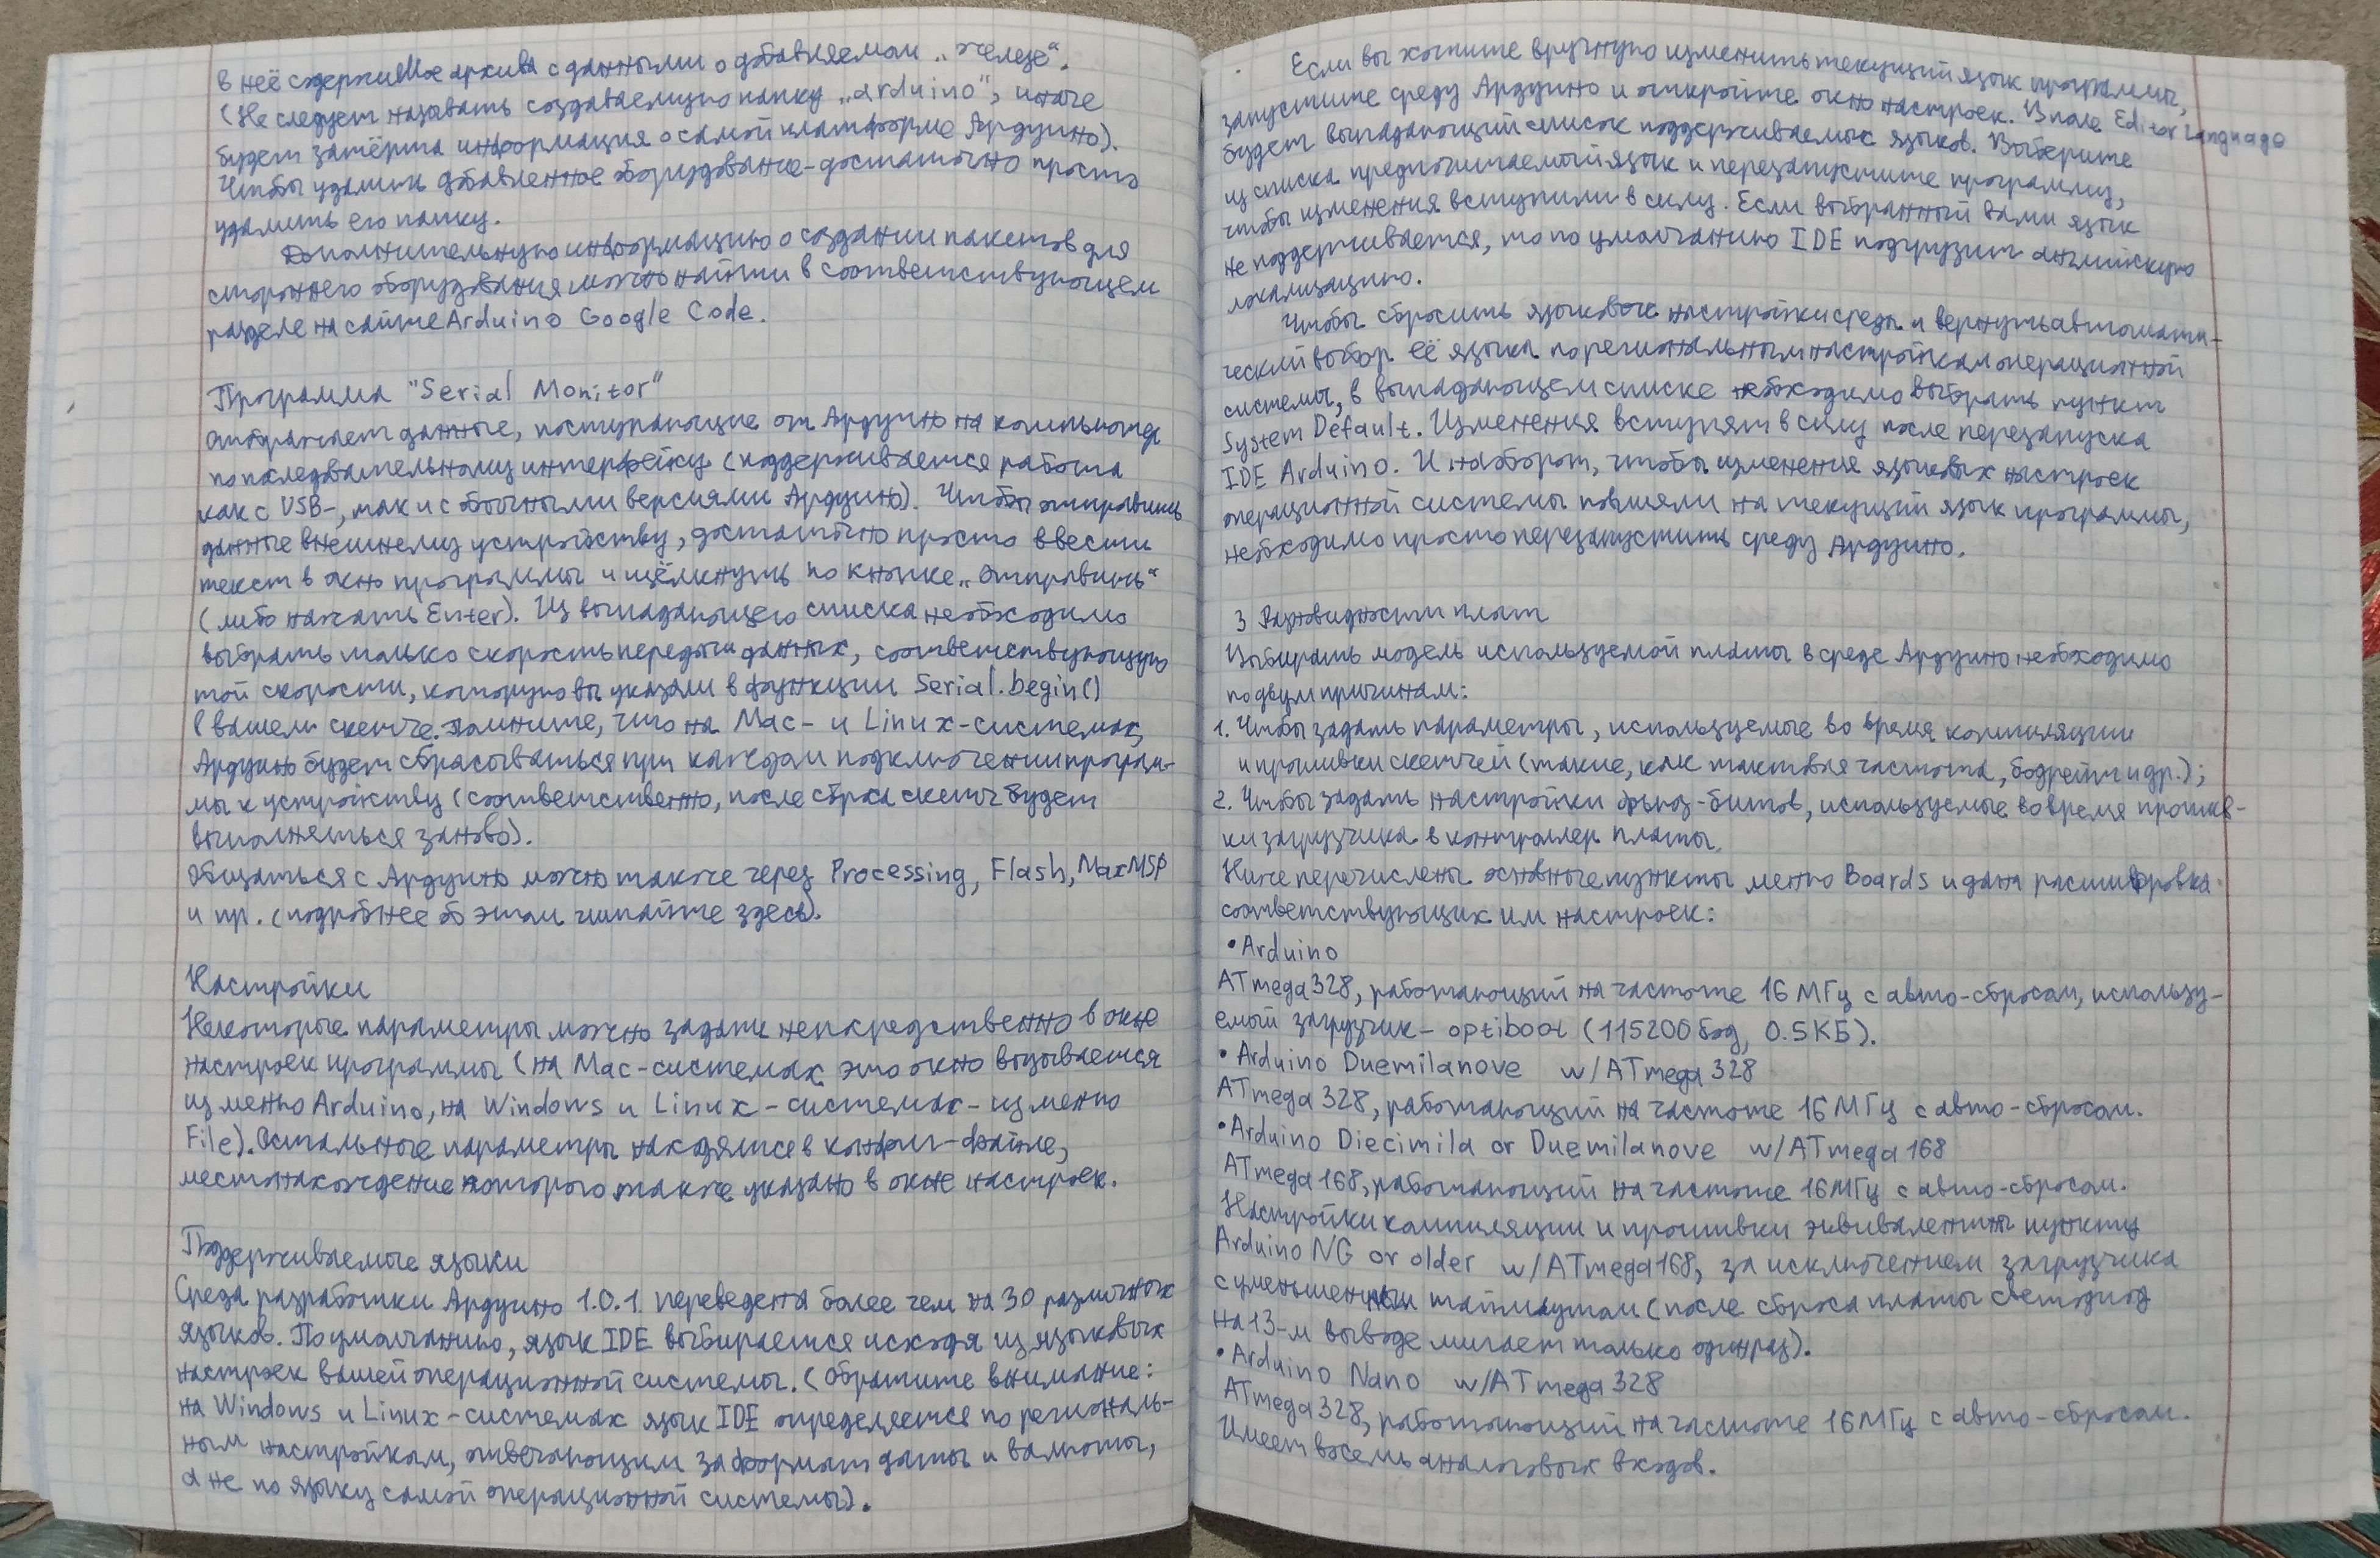 в неё содержимое архива с данными о добавляемом „железе“.
(Не следует называть создаваемую папку „arduino“, иначе
будет затёрта информация о самой платформе Ардуино).
Чтобы удалить добавленное оборудование - достаточно просто
удалить его папку.
Дополнительную информацию о создании пакетов для
стороннего оборудования можно найти в соответствующем
разделе на сайте Arduino Google Code.
Программа "Serial Monitor"
Отображает данные, поступающие от Ардуино на компьютер
по последовательному интерфейсу (поддерживается работа
как с USB-, так и с обычными версиями Ардуино). Чтобы отправить
данные внешнему устройству, достаточно просто ввести
текст в окно программы и щёлкнуть по кнопке „Отправить“
(либо нажать Enter). Из выпадающего списка необходимо
выбрать только скорость передачи данных, соответствующую
той скорости, которую вы указали в функции Serial.begin()
в вашем скетче. Помните, что на Mac- и Linux-системах,
Ардуино будет сбрасываться при каждом подключении програм-
мы к устройству (соответственно, после сброса скетч будет
выполняться заново).
Общаться с Ардуино можно также через Processing, Flash, MaxMSP
и пр. (подробнее об этом читайте здесь).
Настройки
Некоторые параметры можно задать непосредственно в окне
настроек программы (на Mac-системах это окно вызывается
из меню Arduino, на Windows и Linux-системах - из меню
File). Остальные параметры находятся в конфиг-файле,
местонахождение которого также указано в окне настроек.
Поддерживаемые языки
Среда разработки Ардуино 1.0.1 переведена более чем на 30 различных
языков. По умолчанию, язык IDE выбирается исходя из языковых
настроек вашей операционной системы. (Обратите внимание:
на Windows и Linux-системах язык IDE определяется по региональ-
ным настройкам, отвечающим за формат даты и валюты,
а не по языку самой операционной системы).
Если вы хотите вручную изменить текущий язык программы,
запустите среду Ардуино и откройте окно настроек. В поле Editor Language
будет выпадающий список поддерживаемых языков. Выберите
из списка предпочитаемый язык и перезапустите программу,
чтобы изменения вступили в силу. Если выбранный вами язык
не поддерживается, то по умолчанию IDE подгрузит английскую
локализацию.
Чтобы сбросить языковые настройки среды и вернуть автомати-
ческий выбор её языка по региональным настройкам операционной
системы, в выпадающем списке необходимо выбрать пункт
System Default. Изменения вступят в силу после перезапуска
IDE Arduino. И наоборот, чтобы изменения языковых настроек
операционной системы повлияли на текущий язык программы,
необходимо просто перезапустить среду Ардуино.
3 Разновидности плат
Выбирать модель используемой платы в среде Ардуино необходимо
по двум причинам:
1. Чтобы задать параметры, используемые во время компиляции
и прошивки скетчей (такие, как тактовая частота, бодрейт и др.);
2. Чтобы задать настройки фьюз-битов, используемые во время прошив-
ки загрузчика в контроллер платы.
Ниже перечислены основные пункты меню Boards и дана расшифровка
соответствующих им настроек:
• Arduino
ATmega328, работающий на частоте 16 МГц с авто-сбросом, использу-
емый загрузчик - optiboot (115200 бод, 0.5КБ).
• Arduino Duemilanove w/ATmega328
ATmega328, работающий на частоте 16 МГц с авто-сбросом.
• Arduino Diecimila or Duemilanove w/ATmega168
ATmega168, работающий на частоте 16МГц с авто-сбросом.
Настройки компиляции и прошивки эквивалентны пункту
Arduino NG or older w/ATmega168, за исключением загрузчика
с уменьшенным таймаутом (после сброса платы светодиод
на 13-м выводе мигает только один раз).
• Arduino Nano w/ATmega328
ATmega328, работающий на частоте 16МГц с авто-сбросом.
Имеет восемь аналоговых входов.